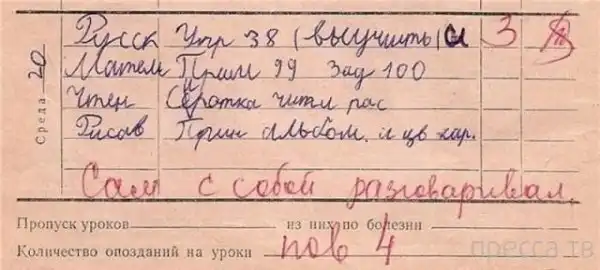 Среда 20
Русск Упр 38 (выучить) 3
Матем Прим 99 Зад 100
Чтен Сиротка чит рас
Рисов Прин альбом. и цв кар.
Сам с собой разговаривал.
Пропуск уроков из них по болезни
Количество опозданий на уроки пов 4
пресса тв